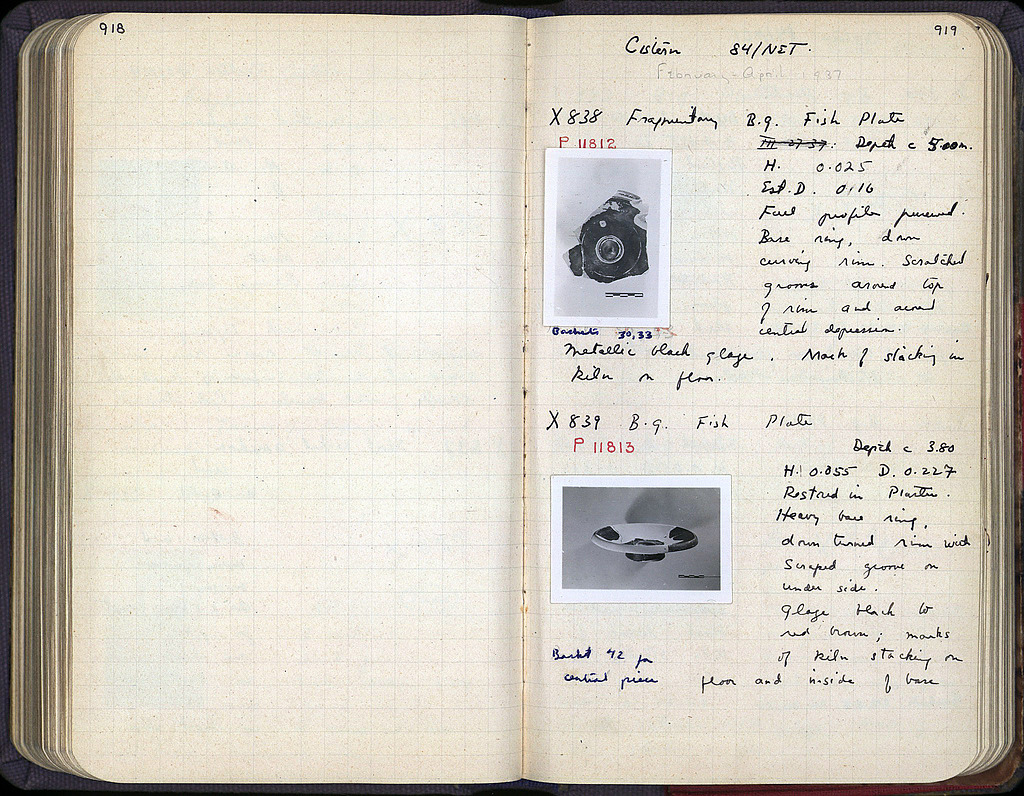 918
919
Cistern 84/NET.
February-April 1937
X 838 Fragmentary B.g. Fish Plate
P 11812
III-27-37. Depth c 5.00m.
H. 0.025
Est. D. 0.16
Full profile preserved.
Base ring, down
curving rim. Scratched
grooves around top
of rim and around
central depression.
Baskets 30,33
Metallic black glaze. Mark of stacking in
kiln on floor.
X 839 B.g. Fish Plate
P 11813
Depth c 3.80
H. 0.055 D. 0.227
Restored in Plaster.
Heavy base ring,
down turned rim with
Scraped groove on
under side.
Glaze black to
red brown; marks
of kiln stacking on
Basket 42 for
central piece
floor and inside of base